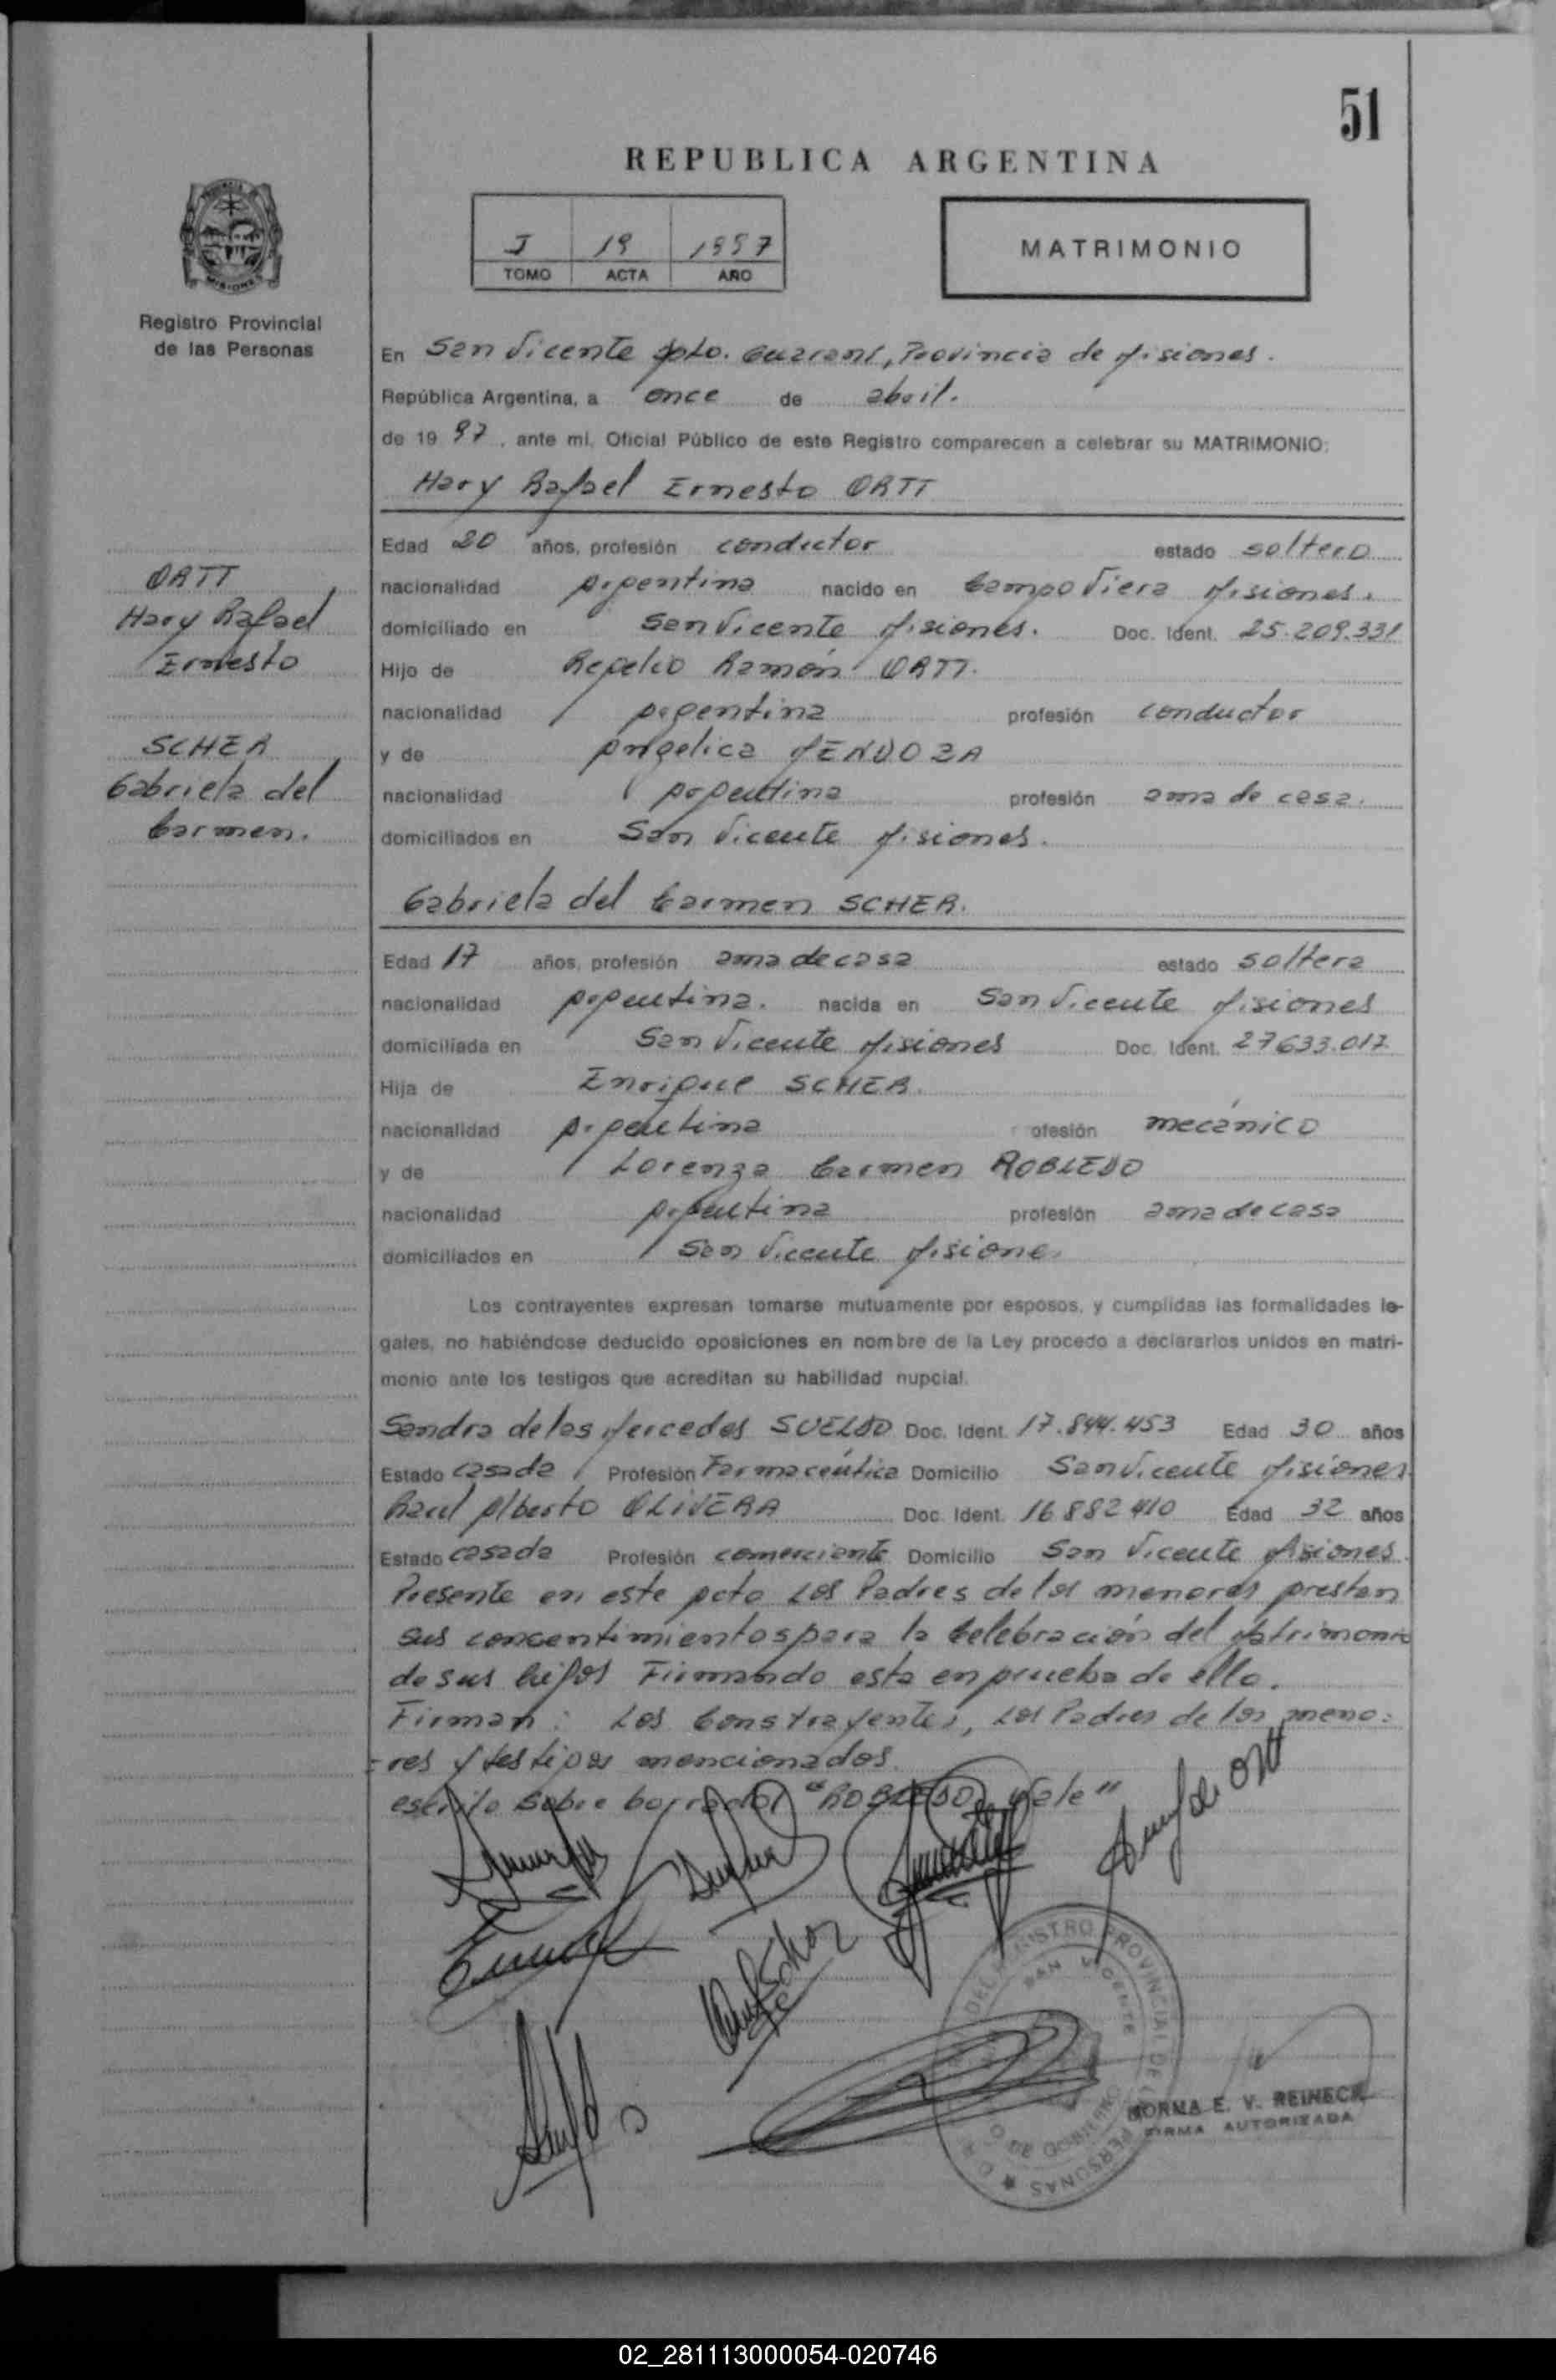 51
REPUBLICA ARGENTINA
I 19 1997
TOMO ACTA AÑO
MATRIMONIO
Registro Provincial
de las Personas
En San Vicente Dpto. Guaraní, Provincia de Misiones.
República Argentina, a once de abril.
de 19 97, ante mi, Oficial Público de este Registro comparecen a celebrar su MATRIMONIO:
Hary Rafael Ernesto ORTT
Edad 20 años, profesión conductor estado soltero
nacionalidad Argentina nacido en Campo Viera Misiones.
domiciliado en San Vicente Misiones. Doc. Ident. 25.209.331
Hijo de Rogelio Ramón ORTT.
nacionalidad Argentina profesión conductor
y de Angelica MENDOZA
nacionalidad Argentina profesión ama de casa.
domiciliados en San Vicente Misiones.
ORTT
Hary Rafael
Ernesto
SCHER
Gabriela del
Carmen.
Gabriela del Carmen SCHER.
Edad 17 años, profesión ama de casa estado soltera
nacionalidad Argentina. nacida en San Vicente Misiones
domiciliada en San Vicente Misiones Doc. Ident. 27633.017
Hija de Enrique SCHER.
nacionalidad Argentina ofesión mecánico
y de Lorenza Carmen ROBLEDO
nacionalidad Argentina profesión ama de casa
domiciliados en San Vicente Misiones
Los contrayentes expresan tomarse mutuamente por esposos, y cumplidas las formalidades le-
gales, no habiéndose deducido oposiciones en nombre de la Ley procedo a declararlos unidos en matri-
monio ante los testigos que acreditan su habilidad nupcial.
Sandra de las Mercedes SUELDO Doc. Ident. 17.844.453 Edad 30 años
Estado casada Profesión Farmacéutica Domicilio San Vicente Misiones
Raul Alberto OLIVERA Doc. Ident. 16882410 Edad 32 años
Estado casado Profesión comerciante Domicilio San Vicente Misiones.
Presente en este Acto Los Padres de los menores prestan
sus concentimientos para la Celebración del Matrimonio
de sus hijos Firmando esta en prueba de ello.
Firman: Los Constrayentes, Los Padres de los meno=
=res y testigos mencionados.
escrito sobre borrado: "ROBLEDO, Vale"
DEL REGISTRO PROVINCIAL DE LAS PERSONAS
SAN VICENTE
DE GOBIERNO
NORMA E. V. REINECK
FIRMA AUTORIZADA
02_281113000054-020746